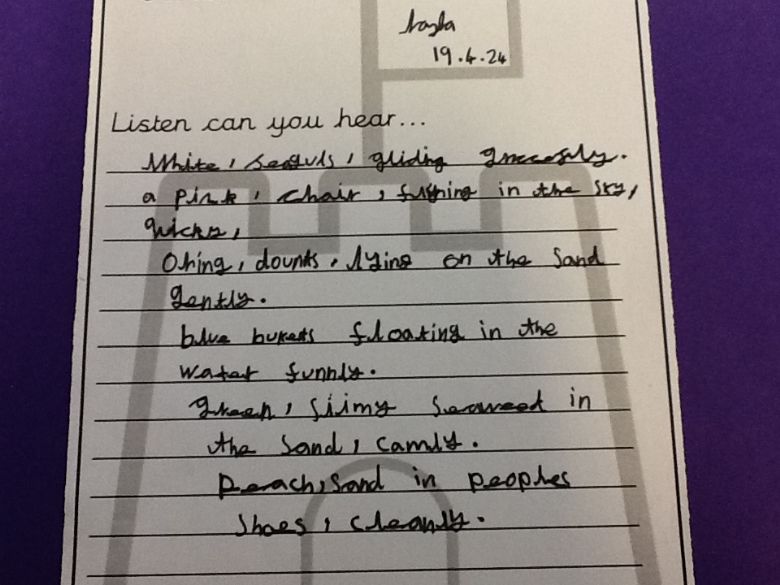 19.4.24
Listen can you hear...
White, seaguls, gliding
a pink, chair, in the sky,
Oring, dounts, lying on the sand
gently.
blue bukets floating in the
water funnly.
green, slimy seaweed in
the sand, camly.
peach, sand in peoples
shoes, cleanly.